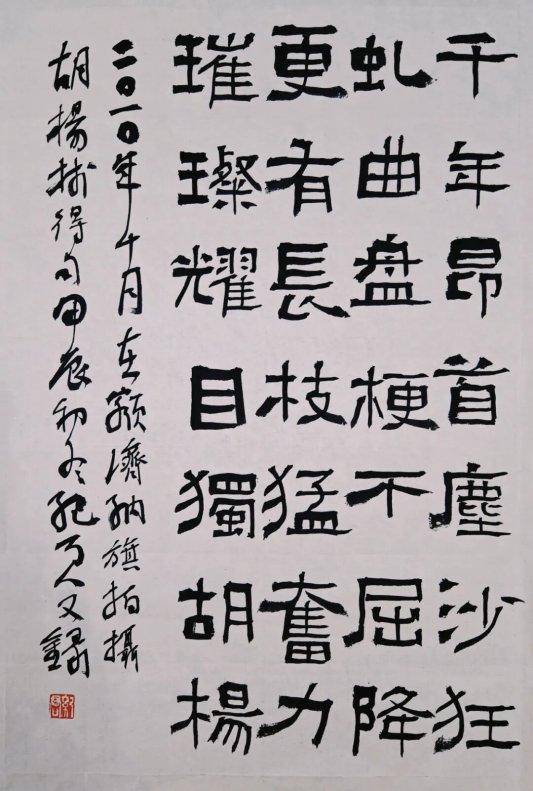 千年昂首塵沙狂
虬曲盘梗不屈降
更有長枝猛奮力
璀璨耀目獨胡楊
二〇一〇年十月在额濟纳旗拍攝
胡楊树得句甲辰初冬纪又錄